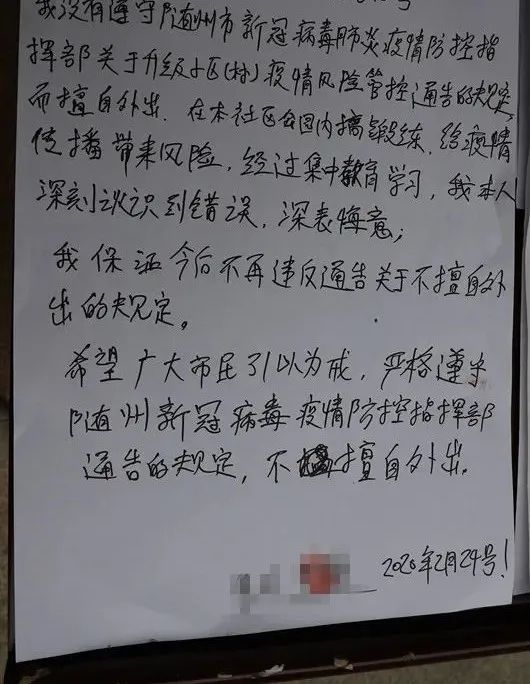 我没有遵守随州市新冠病毒肺炎疫情防控指
挥部关于升级小区(村)疫情风险管控通告的规定,
而擅自外出. 在本社区公园内搞锻练, 给疫情
传播带来风险, 经过集中教育学习, 我本人
深刻认识到错误, 深表悔意;
我保证今后不再违反通告关于不擅自外
出的规定。
希望广大市民引以为戒, 严格遵守
随州新冠病毒疫情防控指挥部
通告的规定, 不擅自外出.
2020年2月24号!